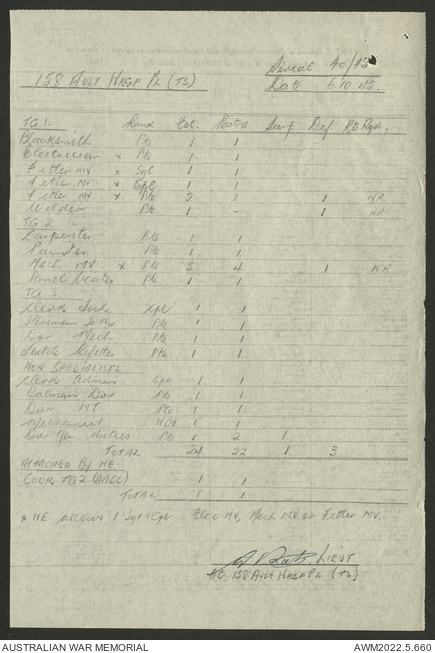 Serial 40/45
158 AUST WKSP PL (TS)
Date 6.10.45.
TG 1. Rank Est. Posted Surp Def. Rts Reqd.
Blacksmith Pte 1 1
Electrician x Pte 1 1
Fitter MV x Sgt 1 1
Fitter MV x Cpl 1 1
Fitter MV x Pte 2 1 1 NR
Welder Pte 1 - 1 NR
TG 2
Carpenter Pte 1 1
Painter Pte 1 1
Mech MV x Pte 5 4 1 NR
Panel Beater Pte 1 1
TG 3
Clerk Cpl 1 1
Storeman Pte 1 1
Mech Pte 1 1
Textile Refitter Pte 1 1
NON SPECIALISTS
Clerk Admin Cpl 1 1
Batman Dvr Pte 1 1
Dvr MT Pte 1 1
Mechanist WO1 1 1
Gen. duties Pte 1 2 1
TOTAL 24 22 1 3
ATTACHED BY WE
COOK TG2 (AACC) 1 1
TOTAL 1 1
x WE allows 1 Sgt 1 Cpl Elec MV, Mech MV or Fitter MV.
LIEUT
OC 158 AUST WKSP PL (TS)
AUSTRALIAN WAR MEMORIAL
AWM2022.5.660